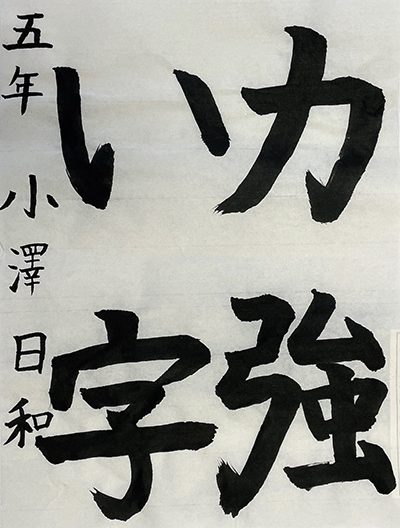 力強
い字
五年 小澤日和